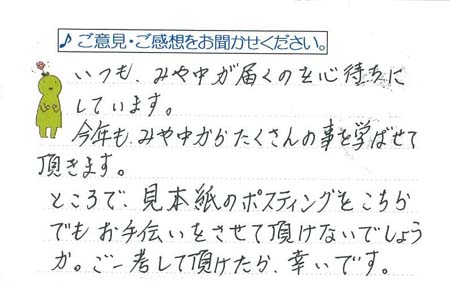 ♪ご意見・ご感想をお聞かせください。
いつも、みや中が届くのを心待ちに
しています。
今年も、みや中からたくさんの事を学ばせて
頂きます。
ところで、見本紙のポスティングをこちら
でもお手伝いをさせて頂けないでしょう
か。ご一考して頂けたら、幸いです。